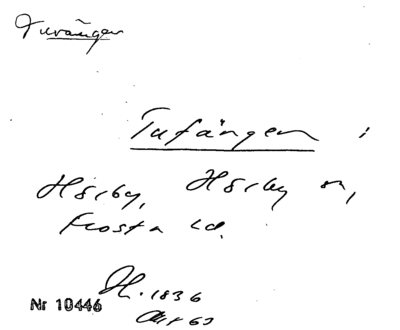 Tuvängen
Tufängen :
Hörby, Hörby sn,
Frosta hd.
H. 1836
Akt 63
Nr 10446